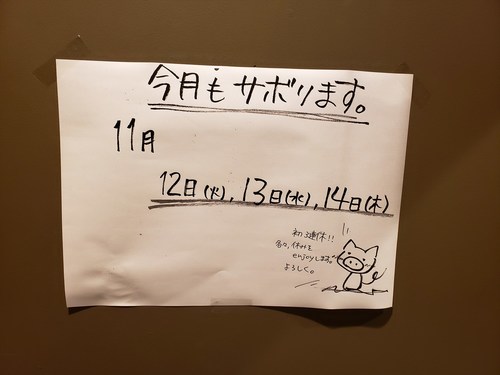 今月もサボります。
11月
12日(火),13日(水),14日(木)
初3連休!!
各々、休みを
enjoyします。
よろしく。